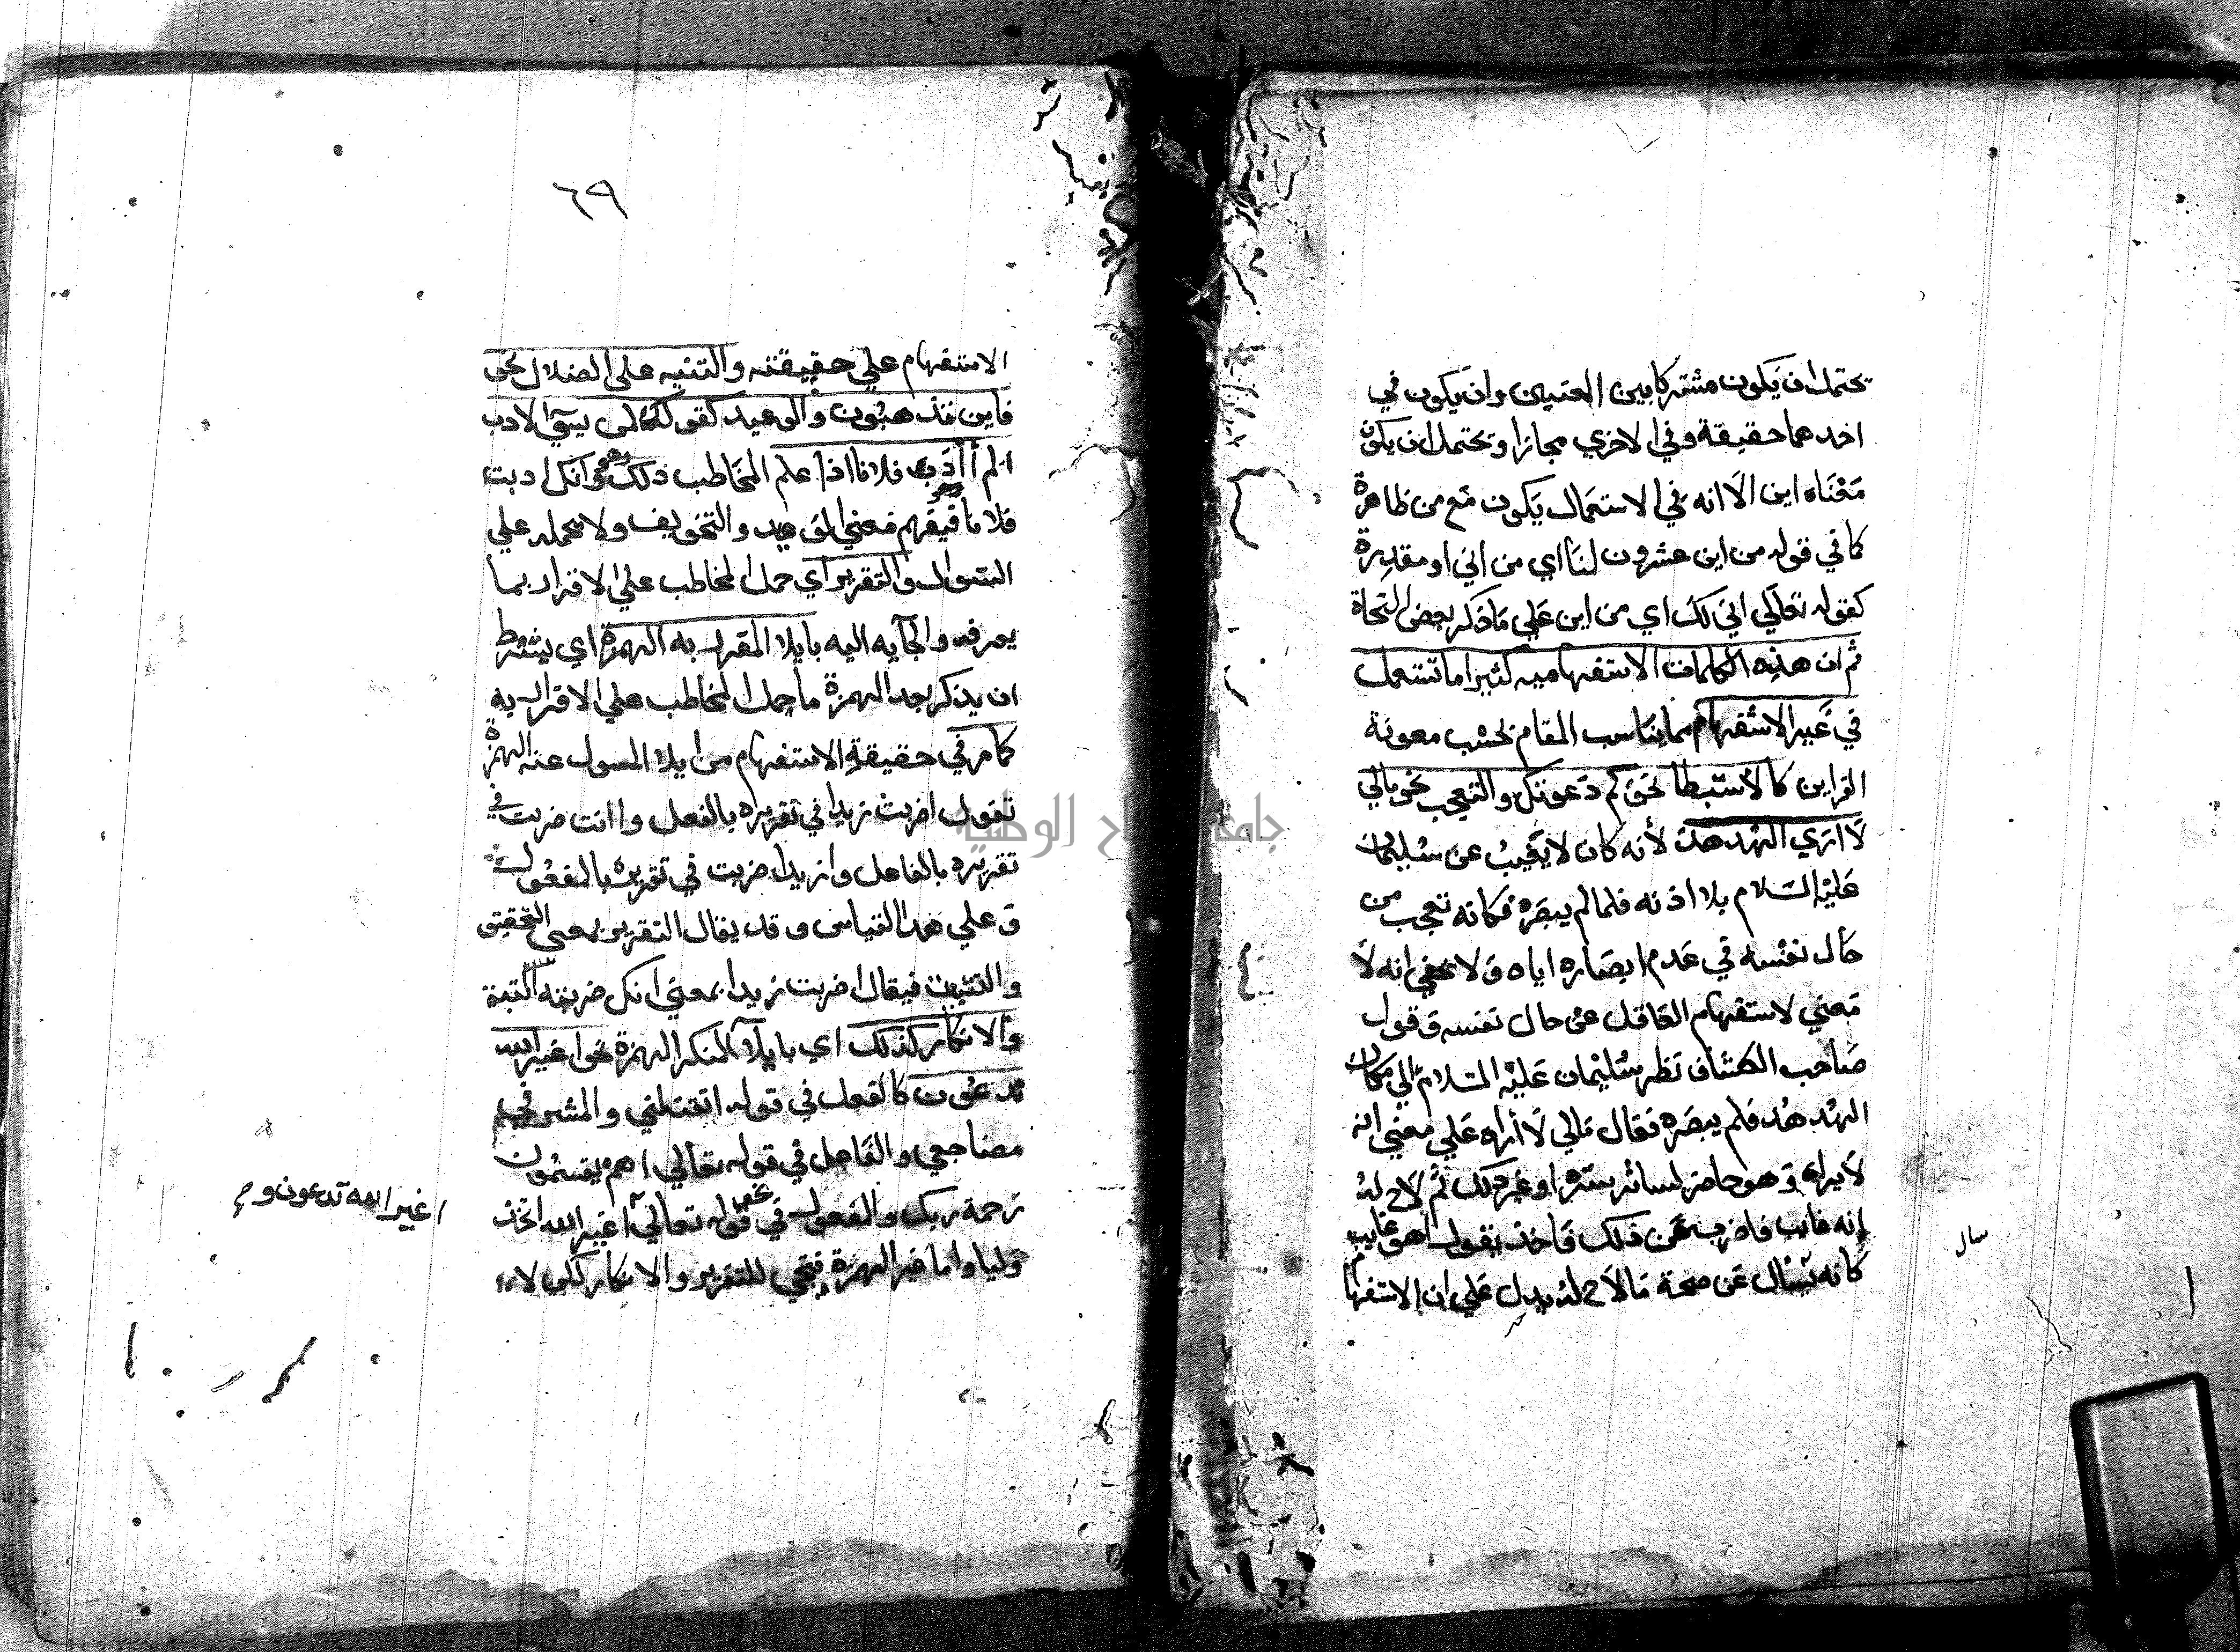 يحتمل ان يكون مشتركا بين المعنيين وان يكون في
احدهما حقيقة وفي الاخري مجازا ويحتمل ان يكون
معناه اين الا انه في الاستعمال يكون مع من ظاهرة
كما في قوله من اين عشرون لنا اي من اني او مقدرة
كقوله تعالي اني لك اي من اين علي ما ذكر بعض النحاة
ثم ان هذه الكلمات الاستفهاميه كثيرا ما تستعمل
في غير الاستفهام مما يناسب المقام بحسب معونة
القراين كالاستبطا نحو كم دعوتك والتعجب نحو مالي
لا اري الهدهد لأنه كان لا يغيب عن سليمان
عليه السلام بلا اذنه فلما لم يبصره فكانه تعجب من
حال نفسه في عدم ابصاره اياه ولا يخفي انه لا
معني لاستفهام العاقل عن حال نفسه وقول
صاحب الكشاف نظر سليمان عليه السلام الي مكان
الهدهد فلم يبصره فقال مالي لا أراه علي معني انه
لا يراه وهو حاضر لساتر ستره او غير ذلك ثم لاح له
انه غايب فاضرب عن ذلك فاخذ يقول اهو غايب
كانه يسأل عن صحة ما لاح له يدل علي ان الاستفهام
سال
٦٩
الاستفهام علي حقيقته والتنبيه علي الضلال نحو
فاين تذهبون والوعيد كقولك لمن يسيي الادب
الم أأدب فلانا اذا علم المخاطب ذلك وهو انك ادبت
فلانا فيفهم معني الوعيد والتخويف ولا يحمله علي
السوال والتقرير اي حمل المخاطب علي الاقرار بما
يعرفه والجآيه اليه بايلا المقرر به الهمزة اي يشترط
ان يذكر بعد الهمزة ما حمل المخاطب علي الاقرار به
كما مر في حقيقة الاستفهام من ايلا المسول عنه الهمزة
تقول اضربت زيدا في تقريره بالفعل واانت ضربت في
تقريره بالفاعل وازيدا ضربت في تقريره بالمفعول
وعلي هذا القياس وقد يقال التقرير بمعني التحقيق
والتثبيت فيقال اضربت زيدا بمعني انك ضربته البتة
والانكار كذلك اي بايلا المنكر الهمزة نحو اغير الله
تدعون كالفعل في قوله اتقتلني والمشرفي
مضاجعي والفاعل في قوله تعالي اهم يقسمون
رحمة ربك والمفعول في نحو قوله تعالي أغير الله اتخذ
وليا واما غير الهمزة فتجي للتقرير والانكار لكن لا
اغير الله تدعون و
جامعة النجاح الوطنية